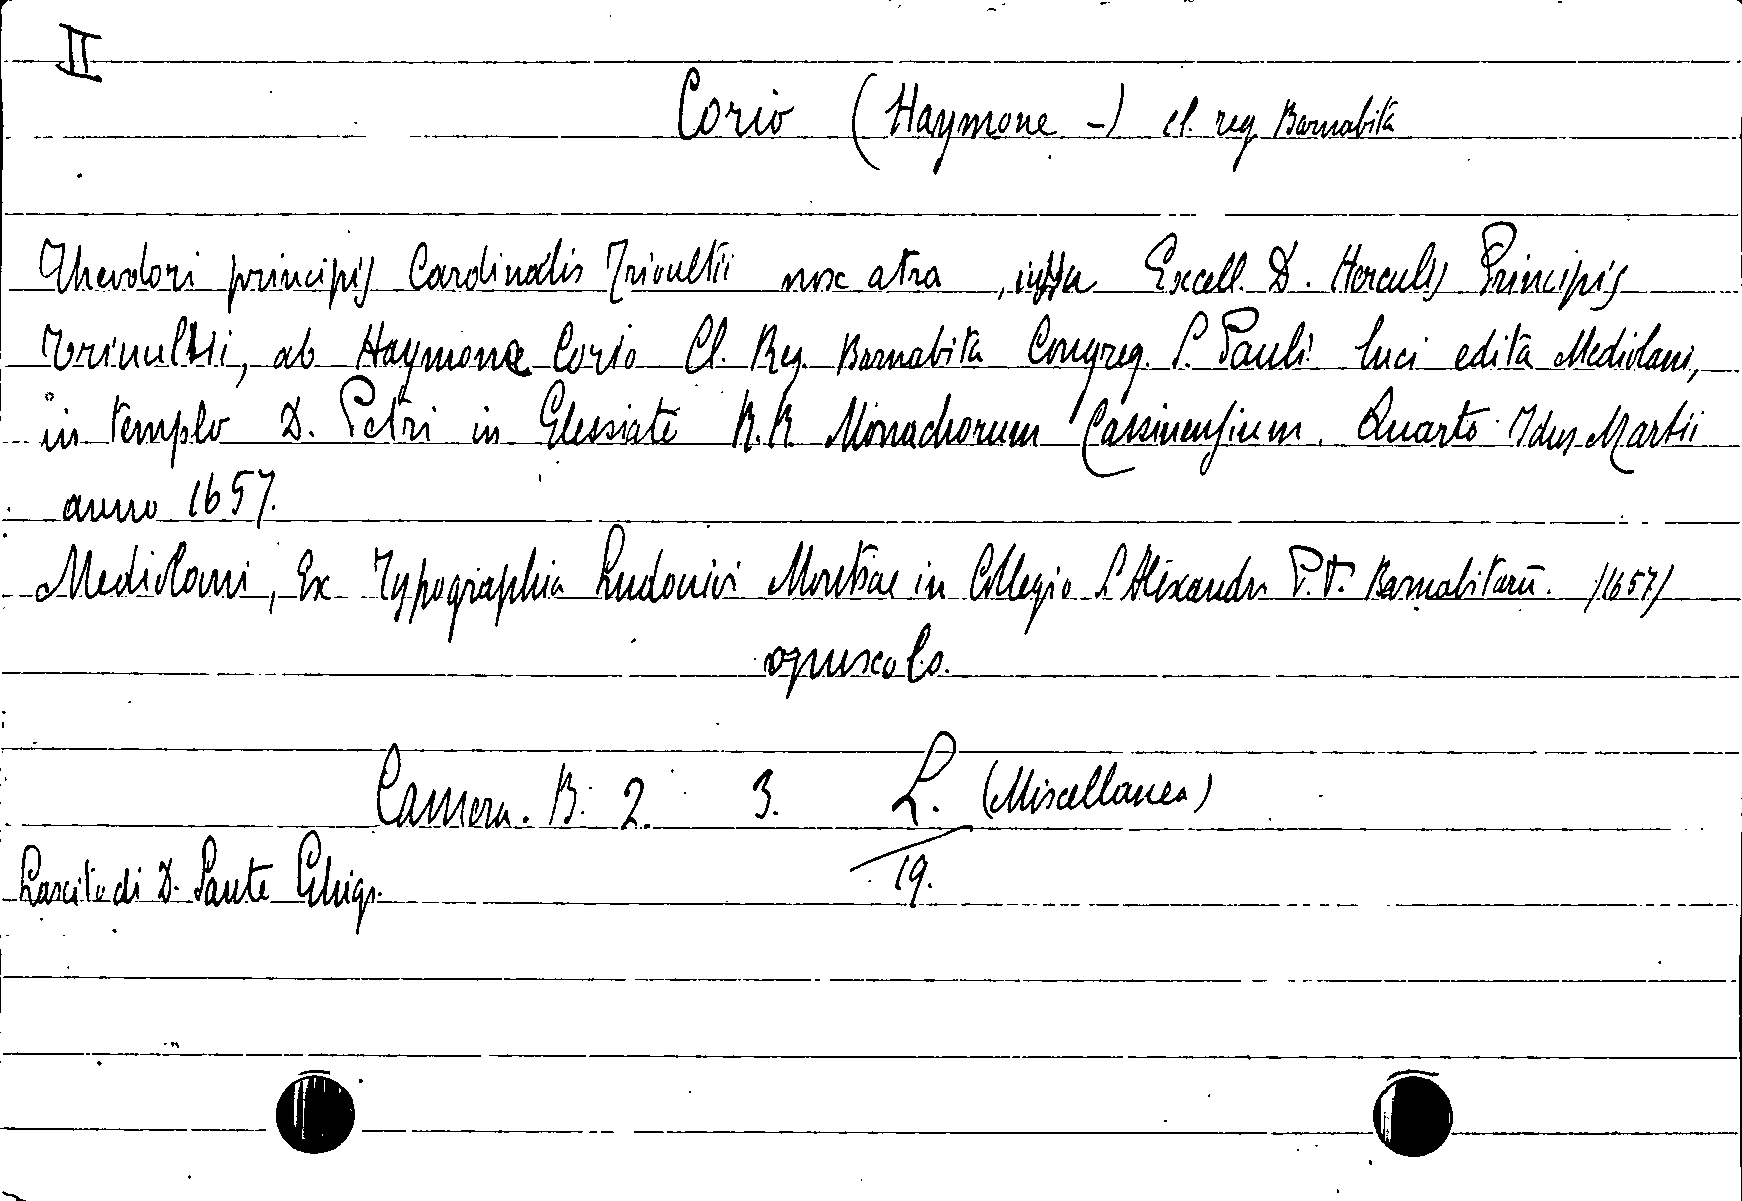 II
Corio (Haymone -) cl. reg. Barnabita
Theodori principis Cardinalis Trivultii nox atra, iussu Excell. D. Herculis Principis
Trivultii, ab Haymone Corio Cl. Reg. Barnabita Congreg. S. Pauli luci edita Mediolani,
in templo D. Petri in Glessiate R.R. Monachorum Cassinensium. Quarto Idus Martii
anno 1657.
Mediolani, Ex Typographia Ludovici Montiae in Collegio S. Alexandri P.P. Barnabitarū. /1657/
opuscolo.
Camera. B. 2. 3. L. (Miscellanea)
19.
Lascito di D. Sante